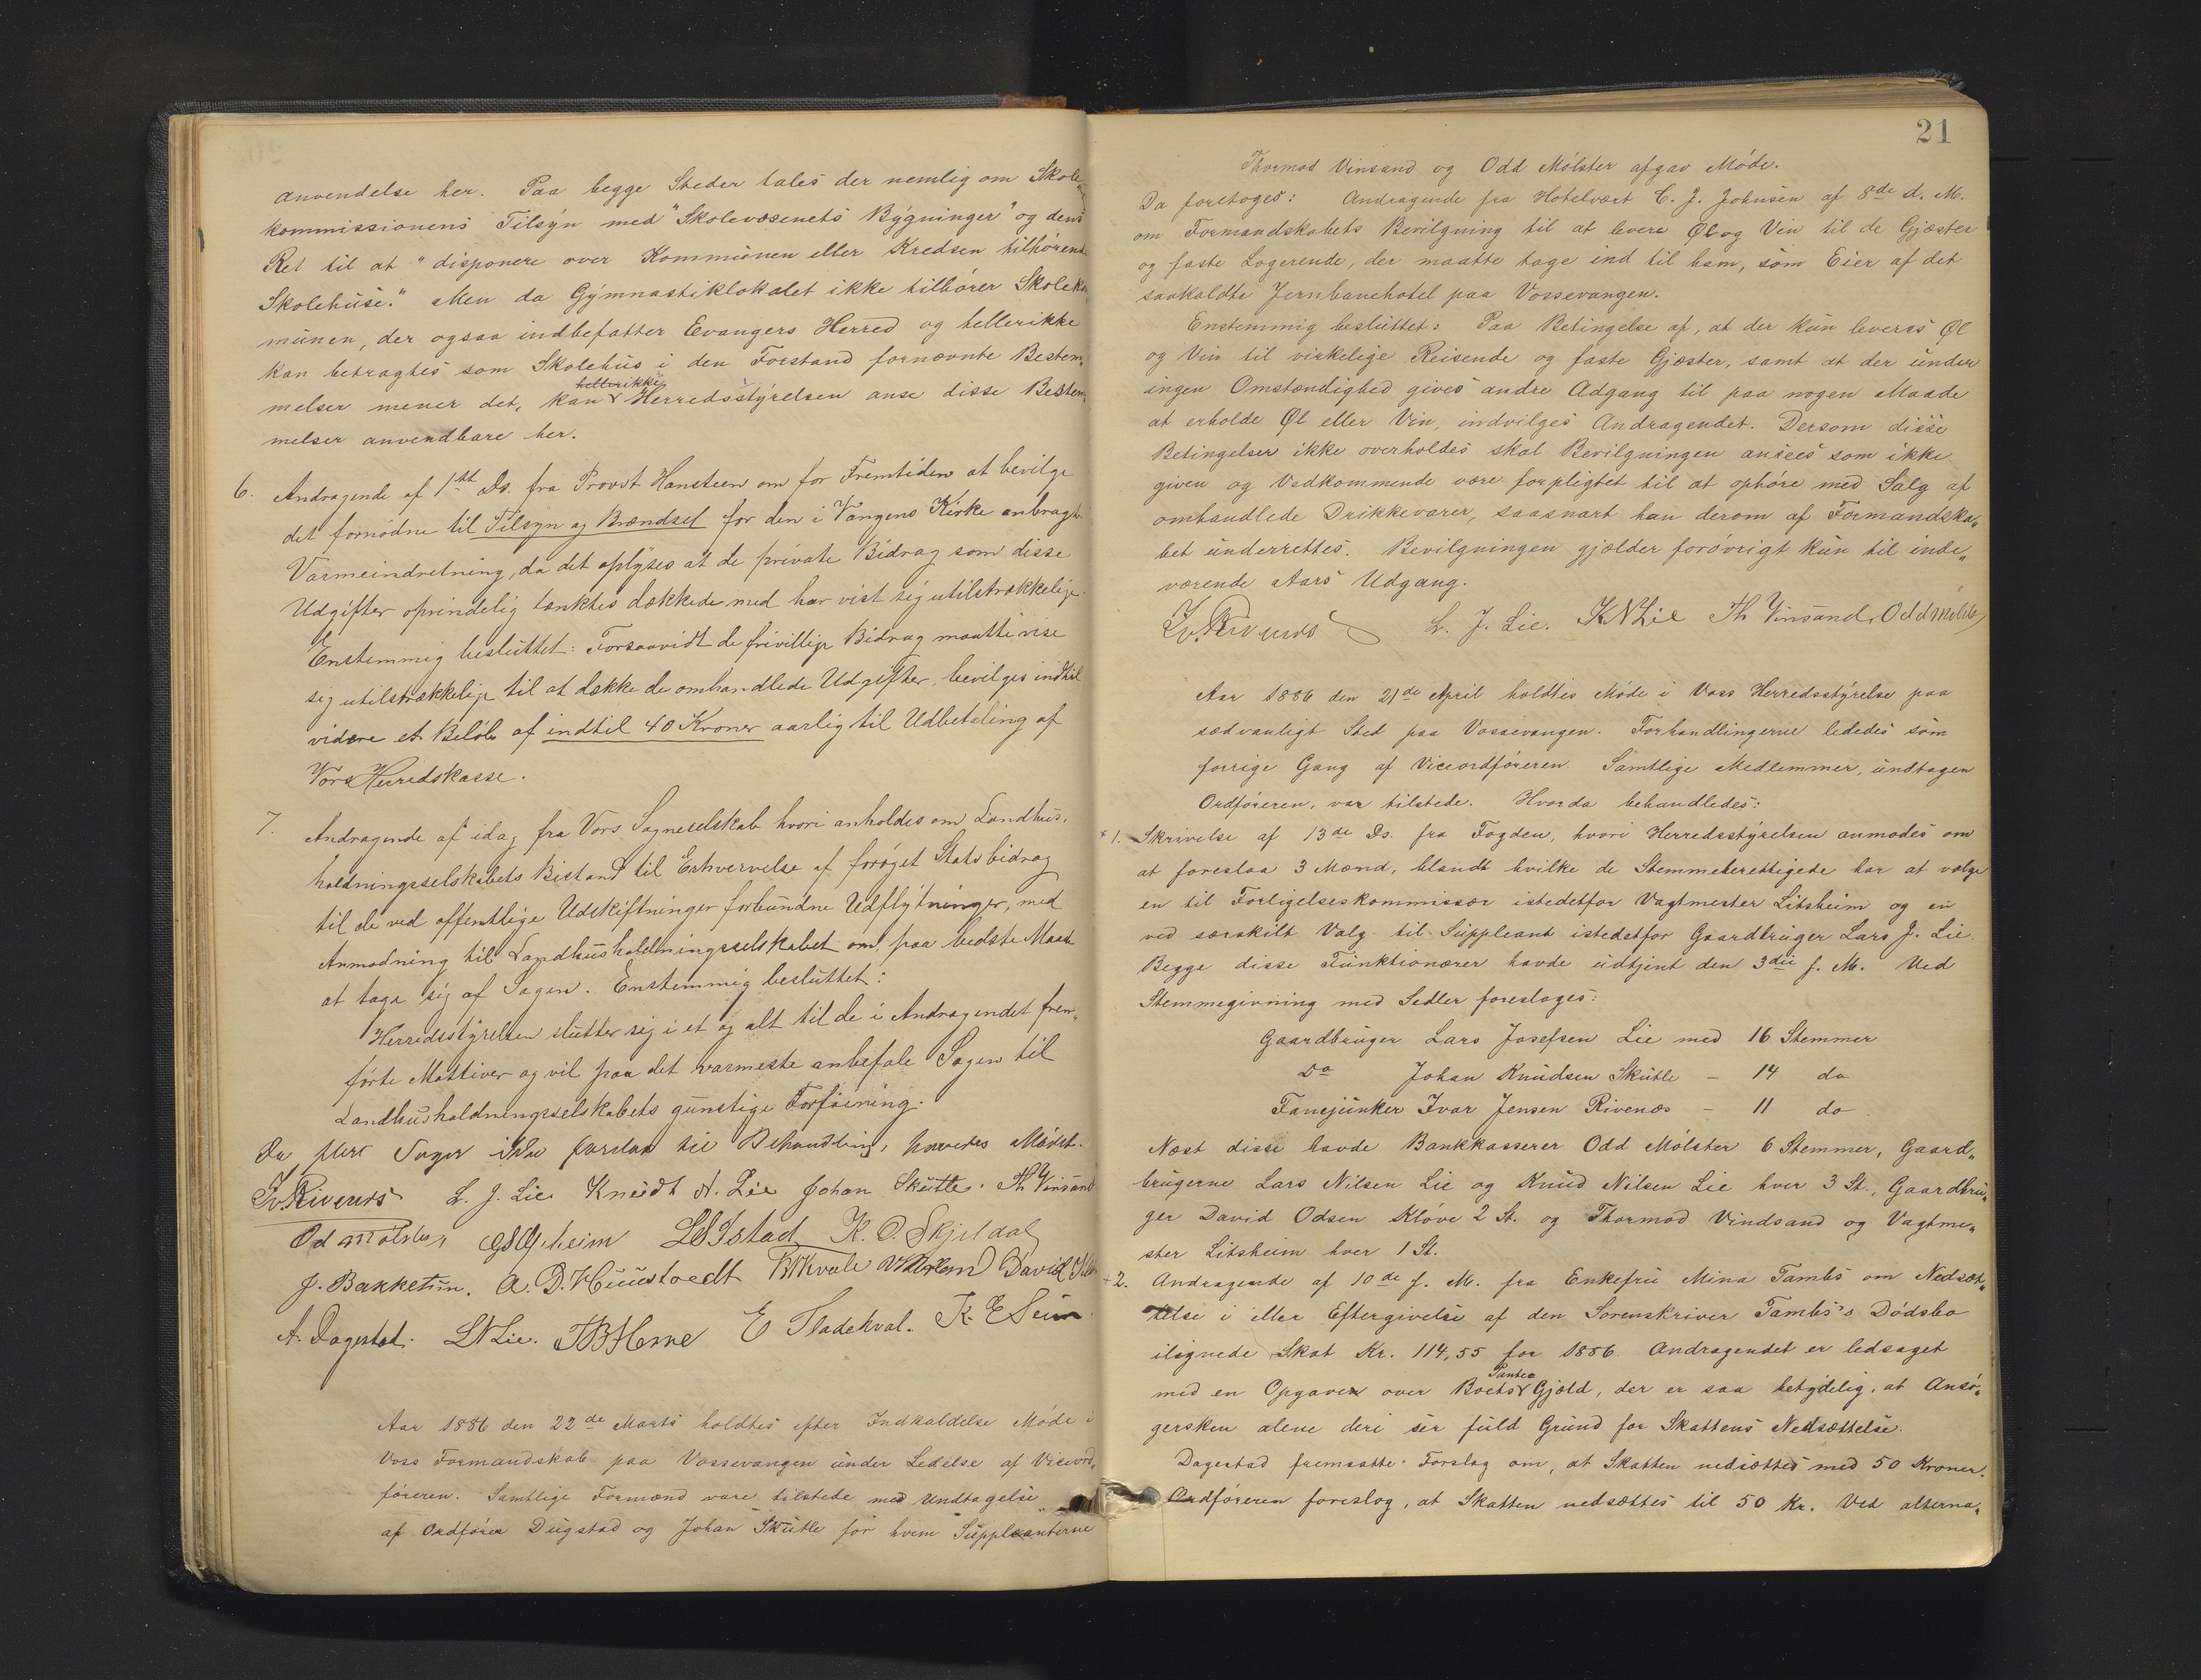 anvendelse her. Paa begge Steder tales der nemlig om Skole„
kommissionens Tilsyn med "Skolevæsenets Bygninger" og dens
Ret til at "disponere over Kommunen eller Kredsen tilhørende
Skolehuse." Men da Gymnastiklokalet ikke tilhører Skoleko
munen, der ogsaa indbefatter Evangers Herred og hellerikke
kan betragtes som Skolehus i den Forstand fornævnte Bestem„
hellerikke
melser mener det, kan Herredsstyrelsen anse disse Bestem„
melser anvendbare her.
6. Andragende af 1ste Ds. fra Provst Hansteen om for Fremtiden at bevilge
det fornødne til Tilsyn og Brændsel for den i Vangens Kirke anbragte
Varmeindretning, da det oplyses at de private Bidrag som disse
Udgifter oprindelig tænktes dækkede med har vist sig utilstrækkelige.
Enstemmig besluttet: Forsaavidt de frivillige Bidrag maatte vise
sig utilstrækkelige til at dække de omhandlede Udgifter, bevilges indtil
videre et Beløb af indtil 40 Kroner aarlig til Udbetaling af
Vors Herredskasse.
7. Andragende af idag fra Vors Sogneselskab hvori anholdes om Landhus„
holdningsselskabets Bistand til Erhvervelse af forøget Statsbidrag
til de ved offentlige Udskiftninger forbundne Udflytninger, med
Anmodning til Landhusholdningsselskabet om, paa bedste Maade
at tage sig af Sagen. Enstemmig besluttet:
Herredsstyrelsen slutter sig i et og alt til de i Andragendet frem„
førte Mottiver og vil paa det varmeste anbefale Sagen til
Landhusholdningsselskabets gunstige Forføining.
Da flere Sager ikke forelaa til Behandling, hævedes Mødet.
Iv. Rivenæs L. J. Lie Knudt N. Lie Johan Skutle. Th Vinsand
Od Mølster LOIstad K. O. Skjeldal
J. Bakketun. A. D. Kvale David
A. Dagestad. LNLie. E Fladekval. K. E Seim
Aar 1886 den 22de Marts holdtes efter Indkaldelse Møde i
Voss Formandskab paa Vossevangen under Ledelse af Viceord„
føreren. Samtlige Formænd vare tilstede med Undtagelse
af Ordfører Dugstad og Johan Skutle for hvem Suppleanterne
21
Thormod Vinsand og Odd Mølster afgav Møde.
Da foretoges: Andragende fra Hotelvært C. J. Johnsen af 8de d. M.
om Formandskabets Bevilgning til at levere Øl og Vin til de Gjæster
og faste Logerende, der maatte tage ind til ham, som Eier af det
saakaldte Jernbanehotel paa Vossevangen.
Enstemmig besluttet: Paa Betingelse af, at der kun leveres Øl
og Vin til virkelige Reisende og faste Gjæster, samt at der under
ingen Omstændighed gives andre Adgang til paa nogen Maade
at erholde Øl eller Vin, indvilges Andragendet. Dersom disse
Betingelser ikke overholdes skal Bevilgningen ansees som ikke
given og Vedkommende være forpligtet til at ophøre med Salg af
omhandlede Drikkevarer, saasnart han derom af Formandska„
bet underrettes. Bevilgningen gjælder forøvrigt kun til inde„
værende Aars Udgang.
Iv. Rivenæs L. J. Lie. KNLie Th Vinsand, Odd Mølster
Aar 1886 den 21de April holdtes Møde i Voss Herredsstyrelse paa
sædvanligt Sted paa Vossevangen. Forhandlingerne lededes som
forrige Gang af Viceordføreren. Samtlige Medlemmer, undtagen
Ordføreren, var tilstede. Hvorda behandledes:
1. Skrivelse af 13de Ds. fra Fogden, hvori Herredsstyrelsen anmodes om
at foreslaa 3 Mænd, blandt hvilke de Stemmeberettigede har at vælge
en til Forligelseskommissær istedetfor Vagtmester Litsheim og en
ved særskilt Valg til Suppleant istedetfor Gaardbruger Lars J. Lie
Begge disse Funktionærer havde udtjent den 3die f. M. Ved
Stemmegivning med Sedler foresloges:
Gaardbruger Lars Josefsen Lie med 16 Stemmer
Do Johan Knudsen Skutle – 14 do
Fanejunker Ivar Jensen Rivenæs – 11 do.
Næst disse havde Bankkasserer Odd Mølster 6 Stemmer, Gaard„
brugerne Lars Nilsen Lie og Knud Nilsen Lie hver 3 St., Gaardbru„
ger David Odsen Kløve 2 St. og Thormod Vindsand og Vagtme„
ster Litsheim hver 1 St.
2. Andragende af 10de f. M. fra Enkefru Mina Tambs om Nedsæt„
telse i eller Eftergivelse af den Sorenskriver Tambs's Dødsbo
ilignede Skat Kr. 114,55 for 1886. Andragendet er ledsaget
Pante
med en Opgave over Boets Gjæld, der er saa betydelig, at Ansø„
gersken alene deri ser fuld Grund for Skattens Nedsættelse.
Dagestad fremsatte Forslag om, at Skatten nedsættes med 50 Kroner.
Ordføreren foreslog, at Skatten nedsættes til 50 Kr. Ved alterna„